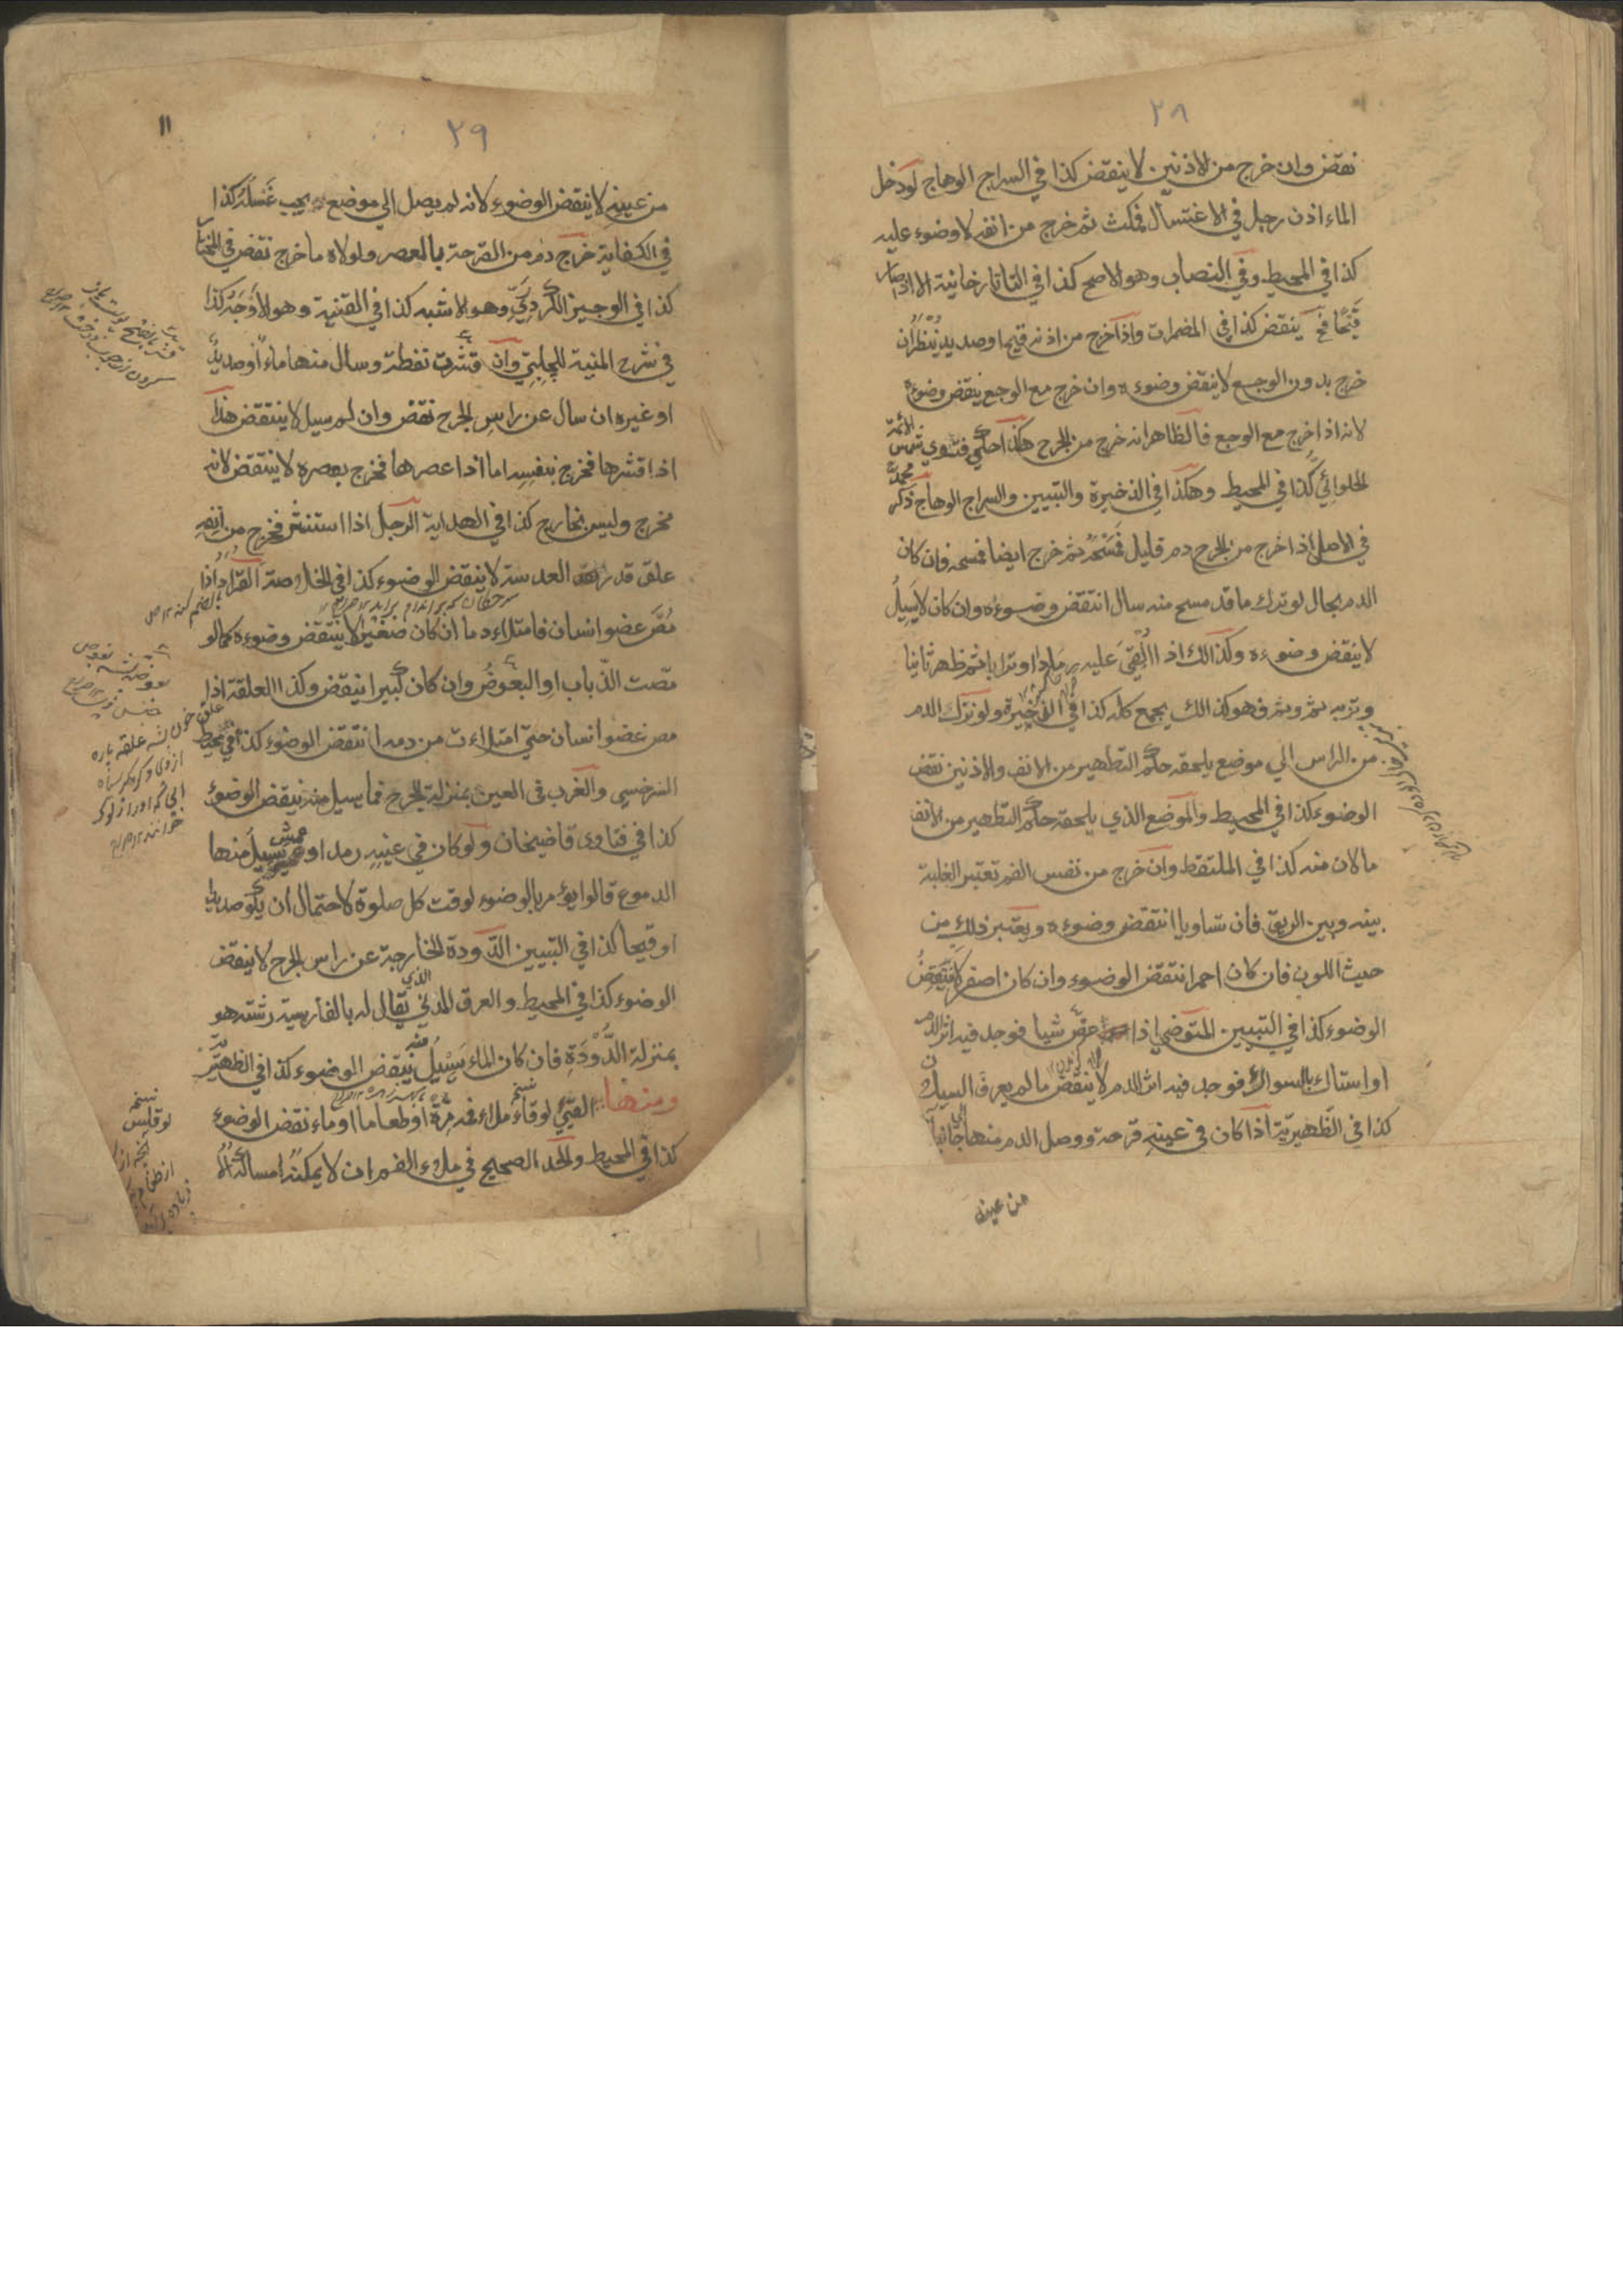 ٢٨
نقض وان خرج من الاذنين لا ينقض كذا في السراج الوهاج لودخل
الماء اذن رجل في الاغتسال فمكث ثم خرج من انفه لا وضوء عليه
كذا في المحيط وفي النصاب وهو الاصح كذا في التاتارخانية الا اذا صار
قَيْحًا فح ينقض كذا في المضمرات واذا خرج من اذنه قيحا وصديد يُنْظَرُ ان
خرج بدون الوجع لا ينقض وضوءه وان خرج مع الوجع ينقض وضوءه
لانه اذا خرج مع الوجع فالظاهر انه خرج من الجرح هكذا حكي فتوي شمس الائمة
الحلوائي كذا في المحيط وهكذا في الذخيرة والتبيين والسراج الوهاج ذكر محمدؒ
في الاصل اذا خرج من الجرح دم قليل فمسحه ثم خرج ايضا فمسحه فان كان
الدم بحال لو ترك ما قد مسح منه سال انتقض وضوءه وان كان لا يَسِيلُ
لا ينقض وضوءه وكذالك اذا اُلْقِيَ عليه رمادا او ترابا ثم ظهر ثانيا
وتربه ثم وثم فهو كذالك يجمع كله كذا في الذخيرة ولو نزل الدم
من الراس الي موضع يلحقه حكم التطهير من الانف والاذنين نقض
الوضوء كذا في المحيط والموضع الذي يلحقه حكم التطهير من الانف
مالان منه كذا في الملتقط وان خرج من نفس الفم تعتبر الغلبة
بينه وبين الريق فان تساويا انتقض وضوءه ويعتبر ذلك من
حيث اللون فان كان احمر انتقض الوضوء وان كان اصفر لا ينتقض
الوضوء كذا في التبيين المتوضي اذا عض شيا فوجد فيه اثر الدم
او استاك بالسواك فوجد فيه اثر الدم لا ينقض ما لم يعرف السيلان
كذا في الظهيرية اذا كان في عينه قرحة ووصل الدم منها الي جانب
من عينه
٢٩
١١
من عينه لا ينقض الوضوء لانه لم يصل الي موضع يجب غسله كذا
في الكفاية خرج دم من القرحة بالعصر ولولاه ما خرج نقض في المختار
كذا في الوجيز الكردري وهو الاشبه كذا في القنية وهو الاوجه كذا
في شرح المنية للچلبي وان قشرت نفطة وسال منها ماء او صديد
او غيره ان سال عن راس الجرح نقض وان لم يسيل لا ينتقض هذا
اذا قشرها فخرج بنفسه اما اذا عصرها فخرج بعصره لا ينتقض لانه
مخرج وليس بخارج كذا في الهداية الرجل اذا استنثر فخرج من انفه
علق قدر العدسة لا ينقض الوضوء كذا في الخلاصة القراد اذا
مَصَّ عضو انسان فامتلاء دما ان كان صغيرا لا ينتقض وضوءه كما لو
مصت الذّباب او البعوضُ وان كان كبيرا ينتقض وكذا العلقة اذا
مص عضو انسان حتي امتلاءت من دمه انتقض الوضوء كذا في محيط
السرخسي والغرب في العين بمنزلة الجرح فما يسيل منه ينقض الوضوء
كذا في فتاوى قاضيخان ولو كان في عينيه رمد او عمش يسيل منها
الدموع قالوا يؤمر بالوضوء لوقت كل صلوة لاحتمال ان يكو صديدا
او قيحا كذا في التبيين الدّودة الخارجة عن راس الجرح لا ينقض
الوضوء كذا في المحيط والعرق المدني الذي يقال له بالفارسية رشته هو
بمنزلة الدُّوْدَةِ فان كان الماء يَسِيْلُ منه ينقض الوضوء كذا في الظهيرية
ومنها القيّ لو قاء ملاء فمه مِرَّة او طعاما او ماء نقض الوضوء
كذا في المحيط والحد الصحيح في ملاء الفم ان لا يمكنه امساكه الا
نسخه
لو قلس